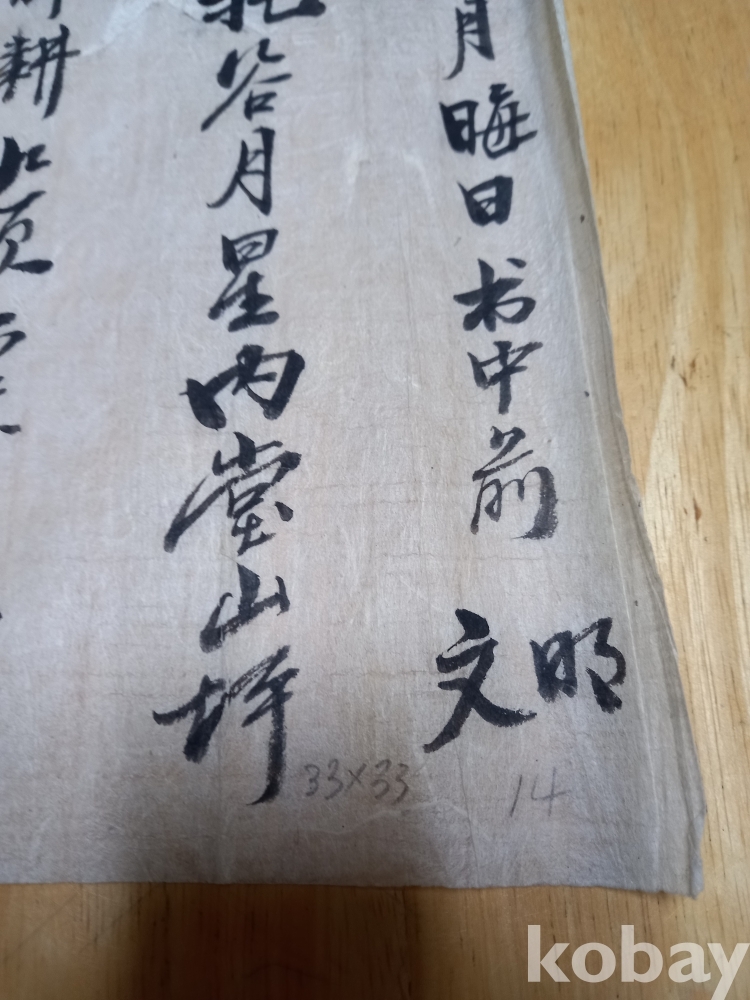 月晦日书中前
明文
谷月星内堂山坪
耕
33×33
14
kobay